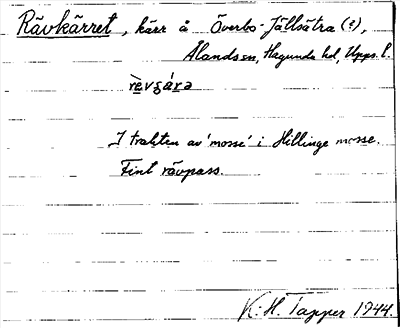 Rävkärret, kärr å Överbo-Jällsätra (?),
Ålands sn, Hagunda hd, Upps. l.
rèvʒárə
I trakten av 'mosse' i Hillinge mosse.
Fint rävpass.
K.-H. Tapper 1944.